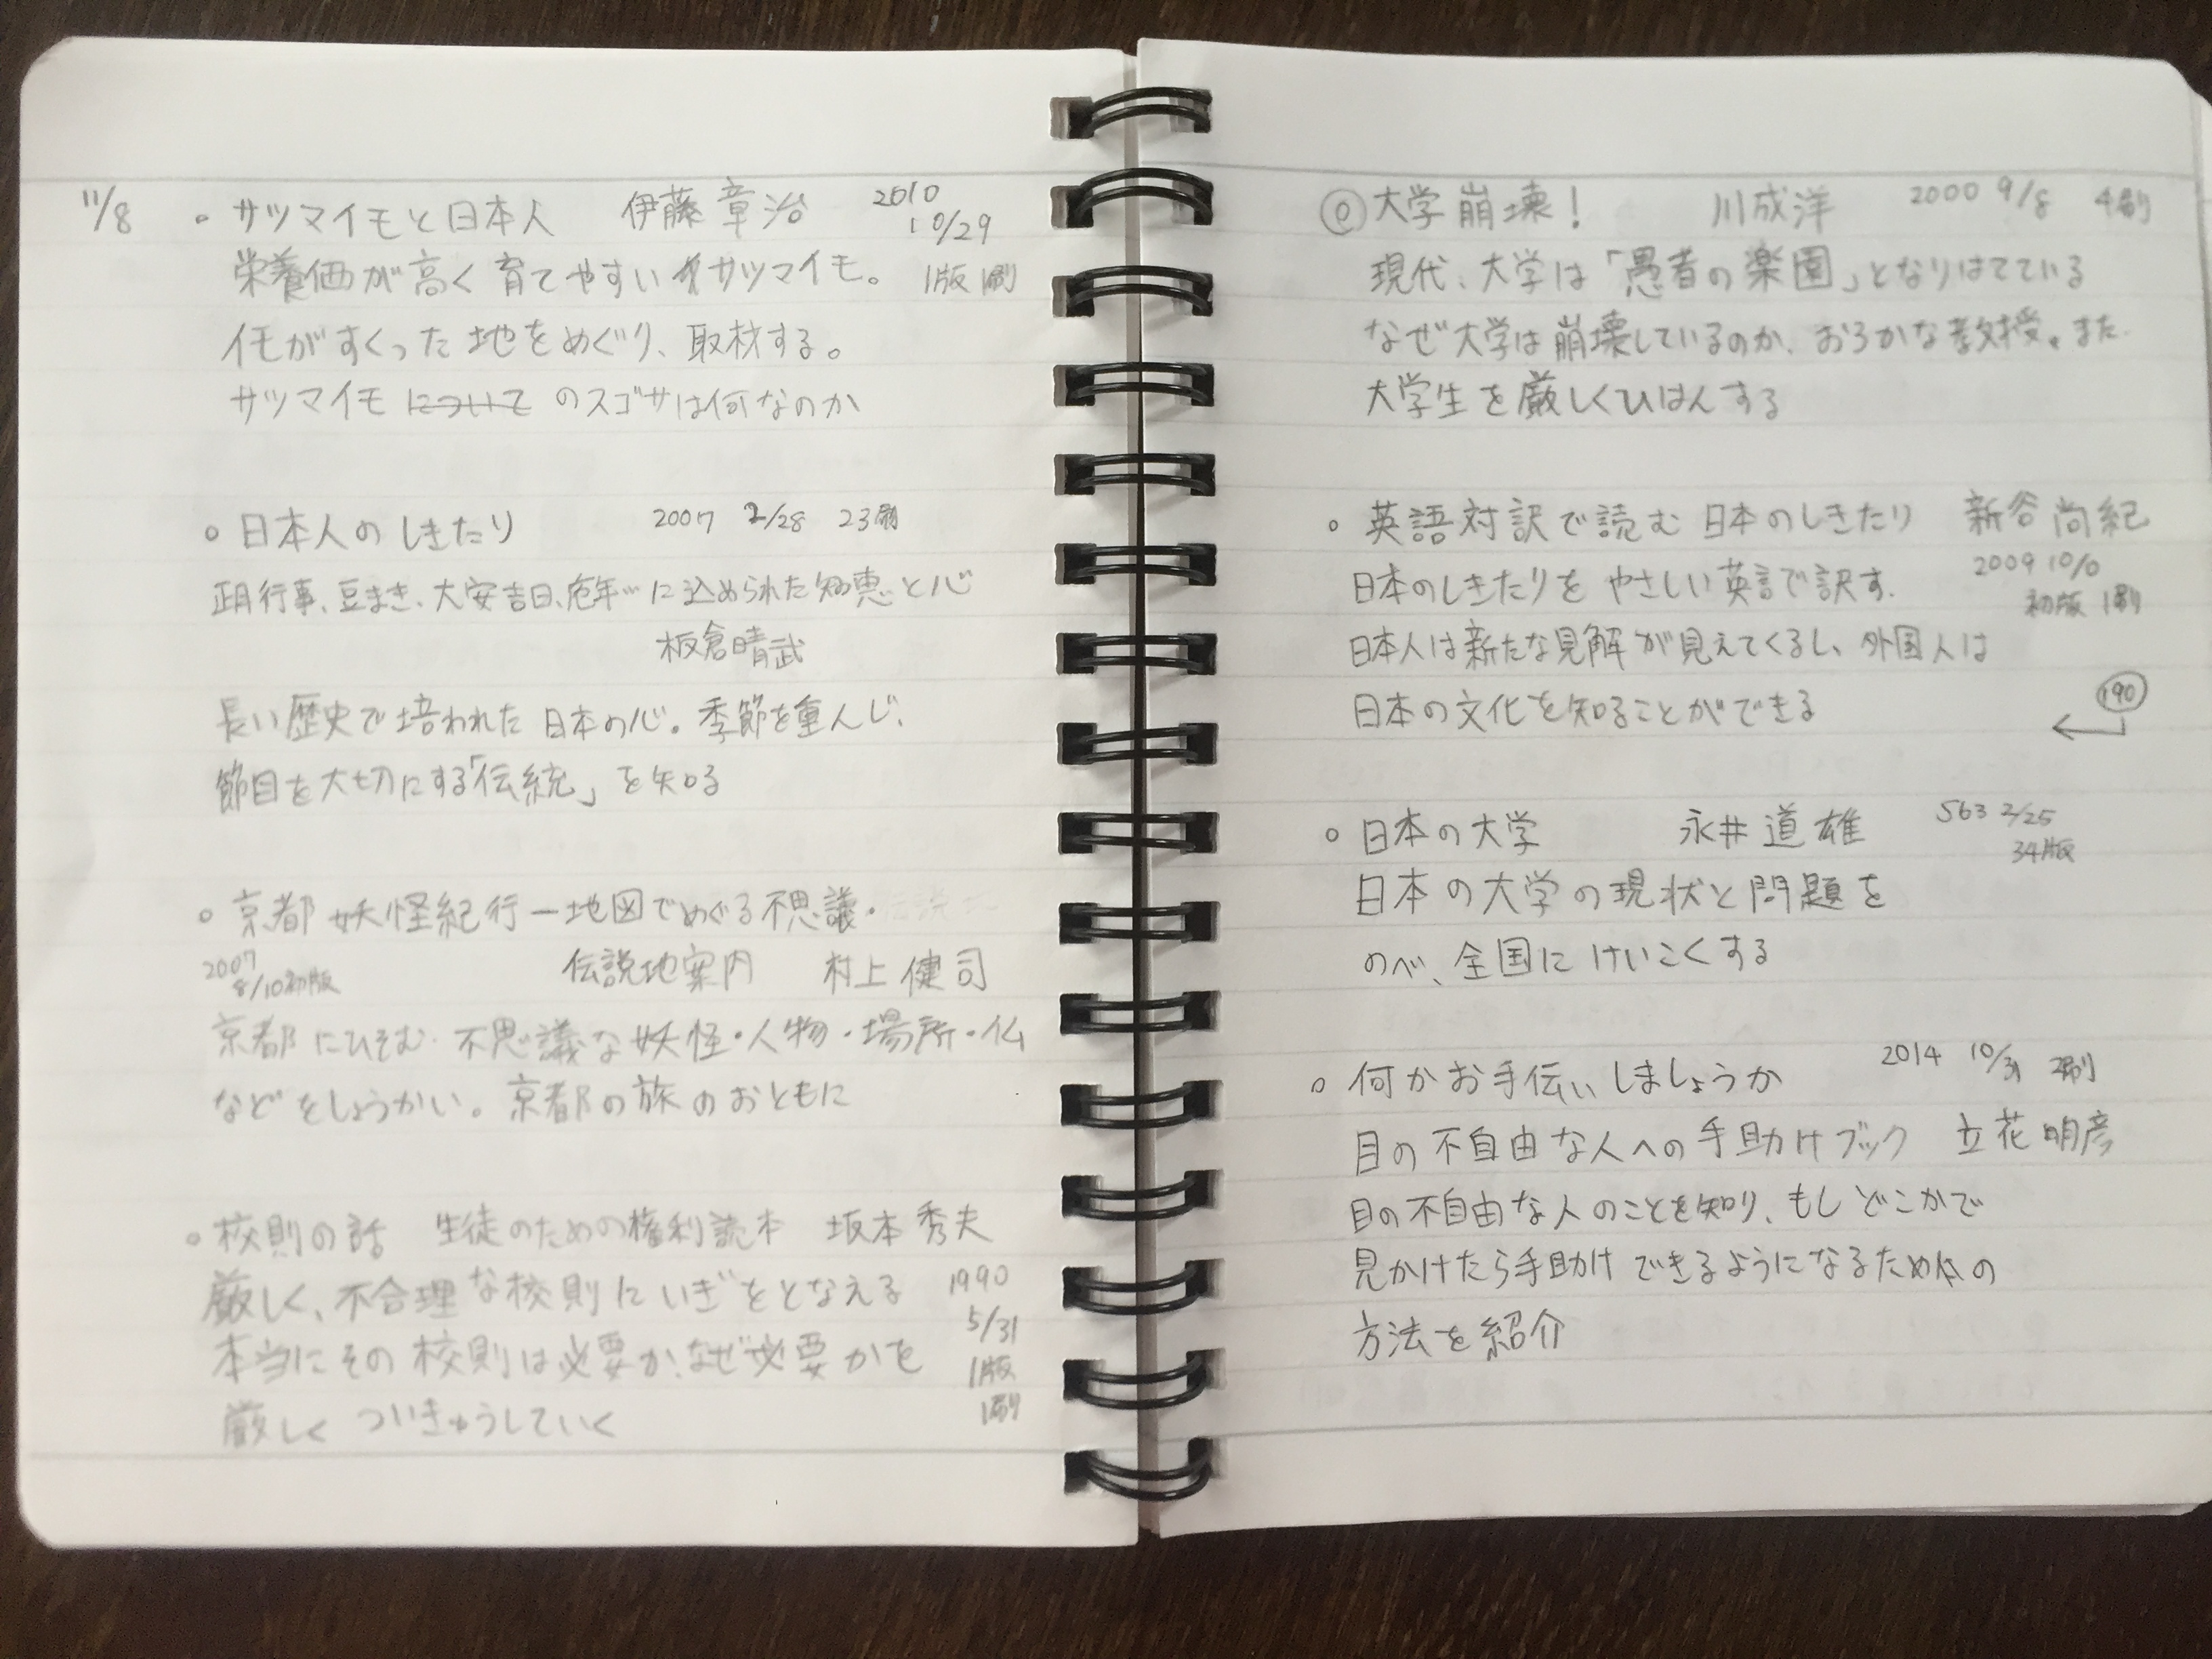 11/8
○ サツマイモと日本人 伊藤章治 2010 10/29
栄養価が高く育てやすいサツマイモ。 1版1刷
イモがすくった地をめぐり、取材する。
サツマイモについてのスゴサは何なのか
○ 日本人のしきたり 2007 2/28 23刷
正月行事、豆まき、大安吉日、厄年…に込められた知恵と心
板倉晴武
長い歴史で培われた日本の心。季節を重んじ、
節目を大切にする「伝統」を知る
○ 京都妖怪紀行ー地図でめぐる不思議・
2007 8/10初版 伝説地案内 村上健司
京都にひそむ不思議な妖怪・人物・場所・仏
などをしょうかい。京都の旅のおともに
○ 校則の話 生徒のための権利読本 坂本秀夫
厳しく、不合理な校則にいぎをとなえる 1990
5/31
本当にその校則は必要か、なぜ必要かを 1版
厳しくついきゅうしていく 1刷
◎大学崩壊! 川成洋 2000 9/8 4刷
現代、大学は「愚者の楽園」となりはてている
なぜ大学は崩壊しているのか、おろかな教授。また
大学生を厳しくひはんする
○ 英語対訳で読む日本のしきたり 新谷尚紀
日本のしきたりをやさしい英語で訳す。 2009 10/10
初版1刷
日本人は新たな見解が見えてくるし、外国人は
日本の文化を知ることができる 190
○ 日本の大学 永井道雄 S63 2/25
34版
日本の大学の現状と問題を
のべ、全国にけいこくする
○ 何かお手伝いしましょうか 2014 10/31 2刷
目の不自由な人への手助けブック 立花明彦
目の不自由な人のことを知り、もしどこかで
見かけたら手助けできるようになるための
方法を紹介